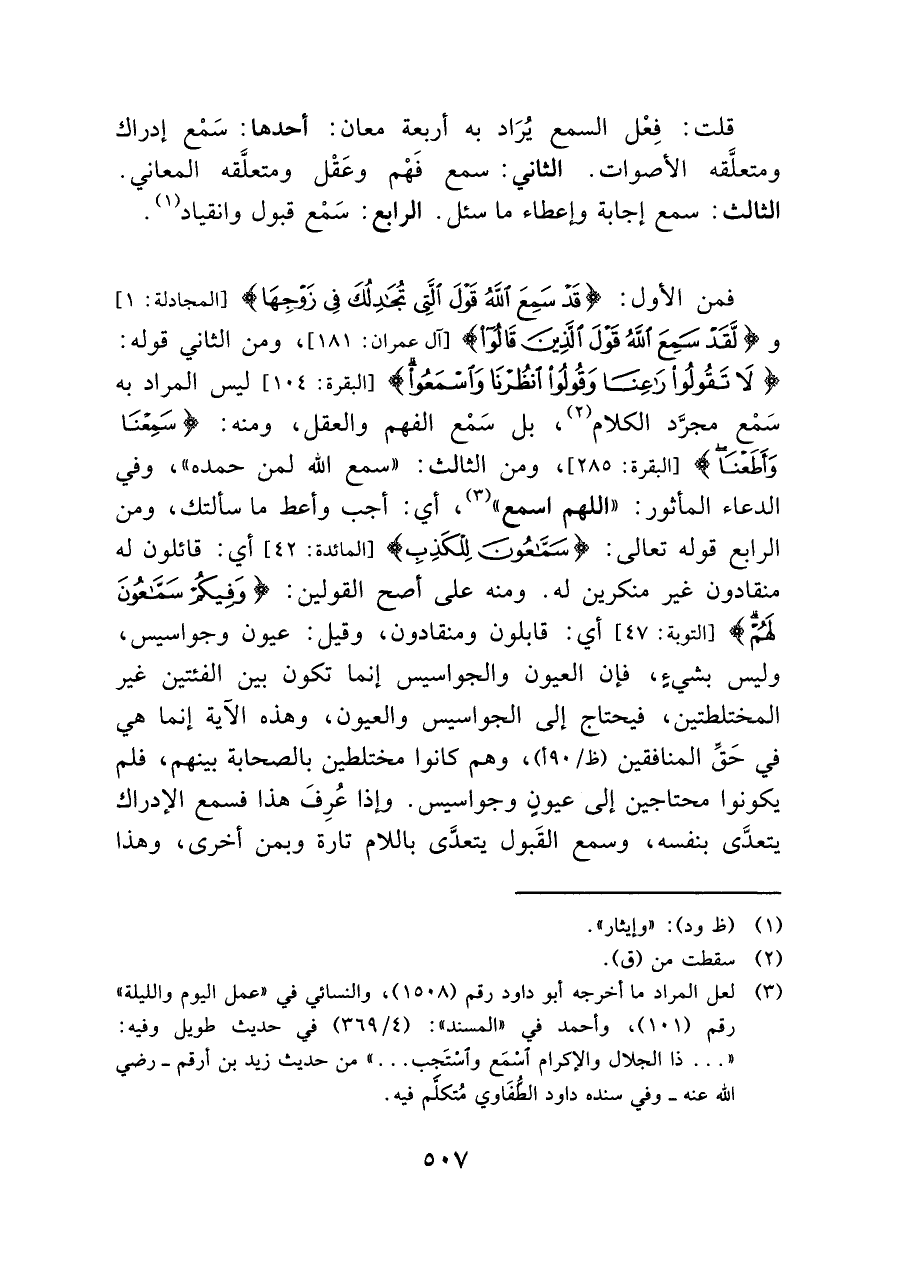 قلت: فِعْل السمع يُرَاد به أربعة معان: أحدها: سَمْع إدراك
ومتعلَّقه الأصوات. الثاني: سمع فَهْم وعَقْل ومتعلَّقه المعاني.
الثالث: سمع إجابة وإعطاء ما سئل. الرابع: سَمْع قبول وانقياد(١).
فمن الأول: ﴿قَدْ سَمِعَ ٱللَّهُ قَوْلَ ٱلَّتِي تُجَٰدِلُكَ فِي زَوْجِهَا﴾ [المجادلة: ١]
و ﴿لَّقَدْ سَمِعَ ٱللَّهُ قَوْلَ ٱلَّذِينَ قَالُوٓا۟﴾ [آل عمران: ١٨١]، ومن الثاني قوله:
﴿لَا تَقُولُوا۟ رَٰعِنَا وَقُولُوا۟ ٱنظُرْنَا وَٱسْمَعُوا۟ۗ﴾ [البقرة: ١٠٤] ليس المراد به
سَمْع مجرَّد الكلام(٢)، بل سَمْع الفهم والعقل، ومنه: ﴿سَمِعْنَا
وَأَطَعْنَاۖ﴾ [البقرة: ٢٨٥]، ومن الثالث: «سمع الله لمن حمده»، وفي
الدعاء المأثور: «اللهم اسمع»(٣)، أي: أجب وأعط ما سألتك، ومن
الرابع قوله تعالى: ﴿سَمَّٰعُونَ لِلْكَذِبِ﴾ [المائدة: ٤٢] أي: قائلون له
منقادون غير منكرين له. ومنه على أصح القولين: ﴿وَفِيكُمْ سَمَّٰعُونَ
لَهُمْۗ﴾ [التوبة: ٤٧] أي: قابلون ومنقادون، وقيل: عيون وجواسيس،
وليس بشيءٍ، فإن العيون والجواسيس إنما تكون بين الفئتين غير
المختلطتين، فيحتاج إلى الجواسيس والعيون، وهذه الآية إنما هي
في حَقِّ المنافقين (ظ/٩٠أ)، وهم كانوا مختلطين بالصحابة بينهم، فلم
يكونوا محتاجين إلى عيونٍ وجواسيس. وإذا عُرِفَ هذا فسمع الإدراك
يتعدَّى بنفسه، وسمع القَبول يتعدَّى باللام تارة وبمن أخرى، وهذا
(١) (ظ ود): «وإيثار».
(٢) سقطت من (ق).
(٣) لعل المراد ما أخرجه أبو داود رقم (١٥٠٨)، والنسائي في «عمل اليوم والليلة»
رقم (١٠١)، وأحمد في «المسند»: (٣٦٩/٤) في حديث طويل وفيه:
«... ذا الجلال والإكرام ٱسْمَع وٱسْتَجِب...» من حديث زيد بن أرقم ـ رضي
الله عنه ـ وفي سنده داود الطُّفَاوي مُتكلَّم فيه.
٥٠٧